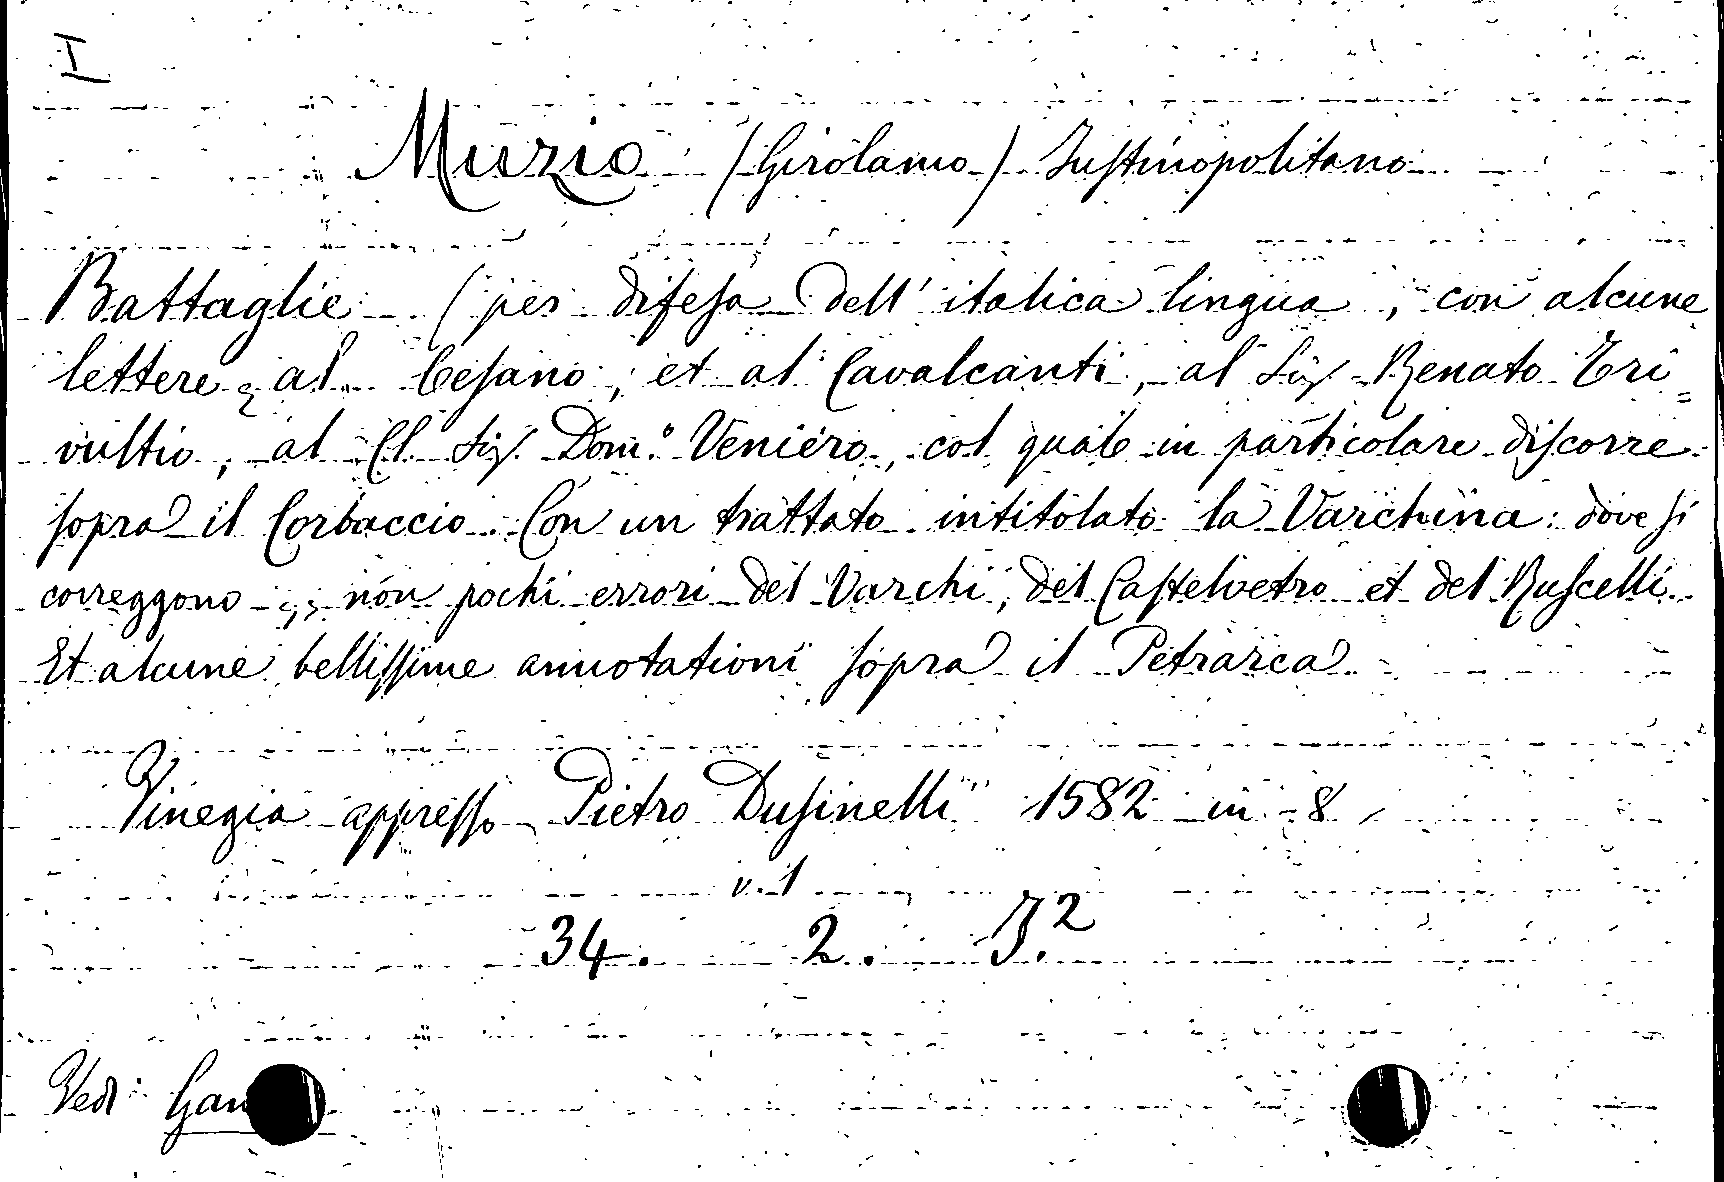 I
Muzio (Girolamo) Justinopolitano
Battaglie (per difesa dell' italica lingua, con alcune
lettere, al Cesano, et al Cavalcanti, al Sig. Renato Tri=
vultio, al Cl. Sig. Dom.º Veniero, col quale in particolare discorre
sopra il Corbaccio. Con un trattato intitolato la Varchina: dove si
correggono non pochi errori del Varchi, del Castelvetro et del Ruscelli.
Et alcune bellissime annotationi sopra il Petrarca.
Vinegia appresso Pietro Dusinelli 1582 in 8
v. 1
34. 2. J.²
Vedi